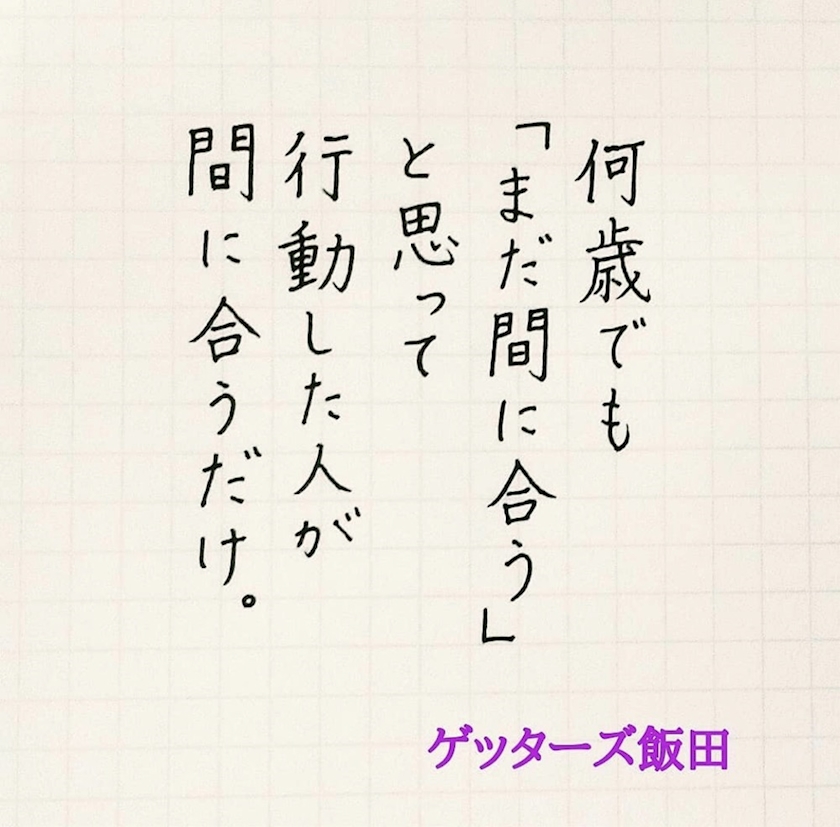 何歳でも
「まだ間に合う」
と思って
行動した人が
間に合うだけ。
ゲッターズ飯田